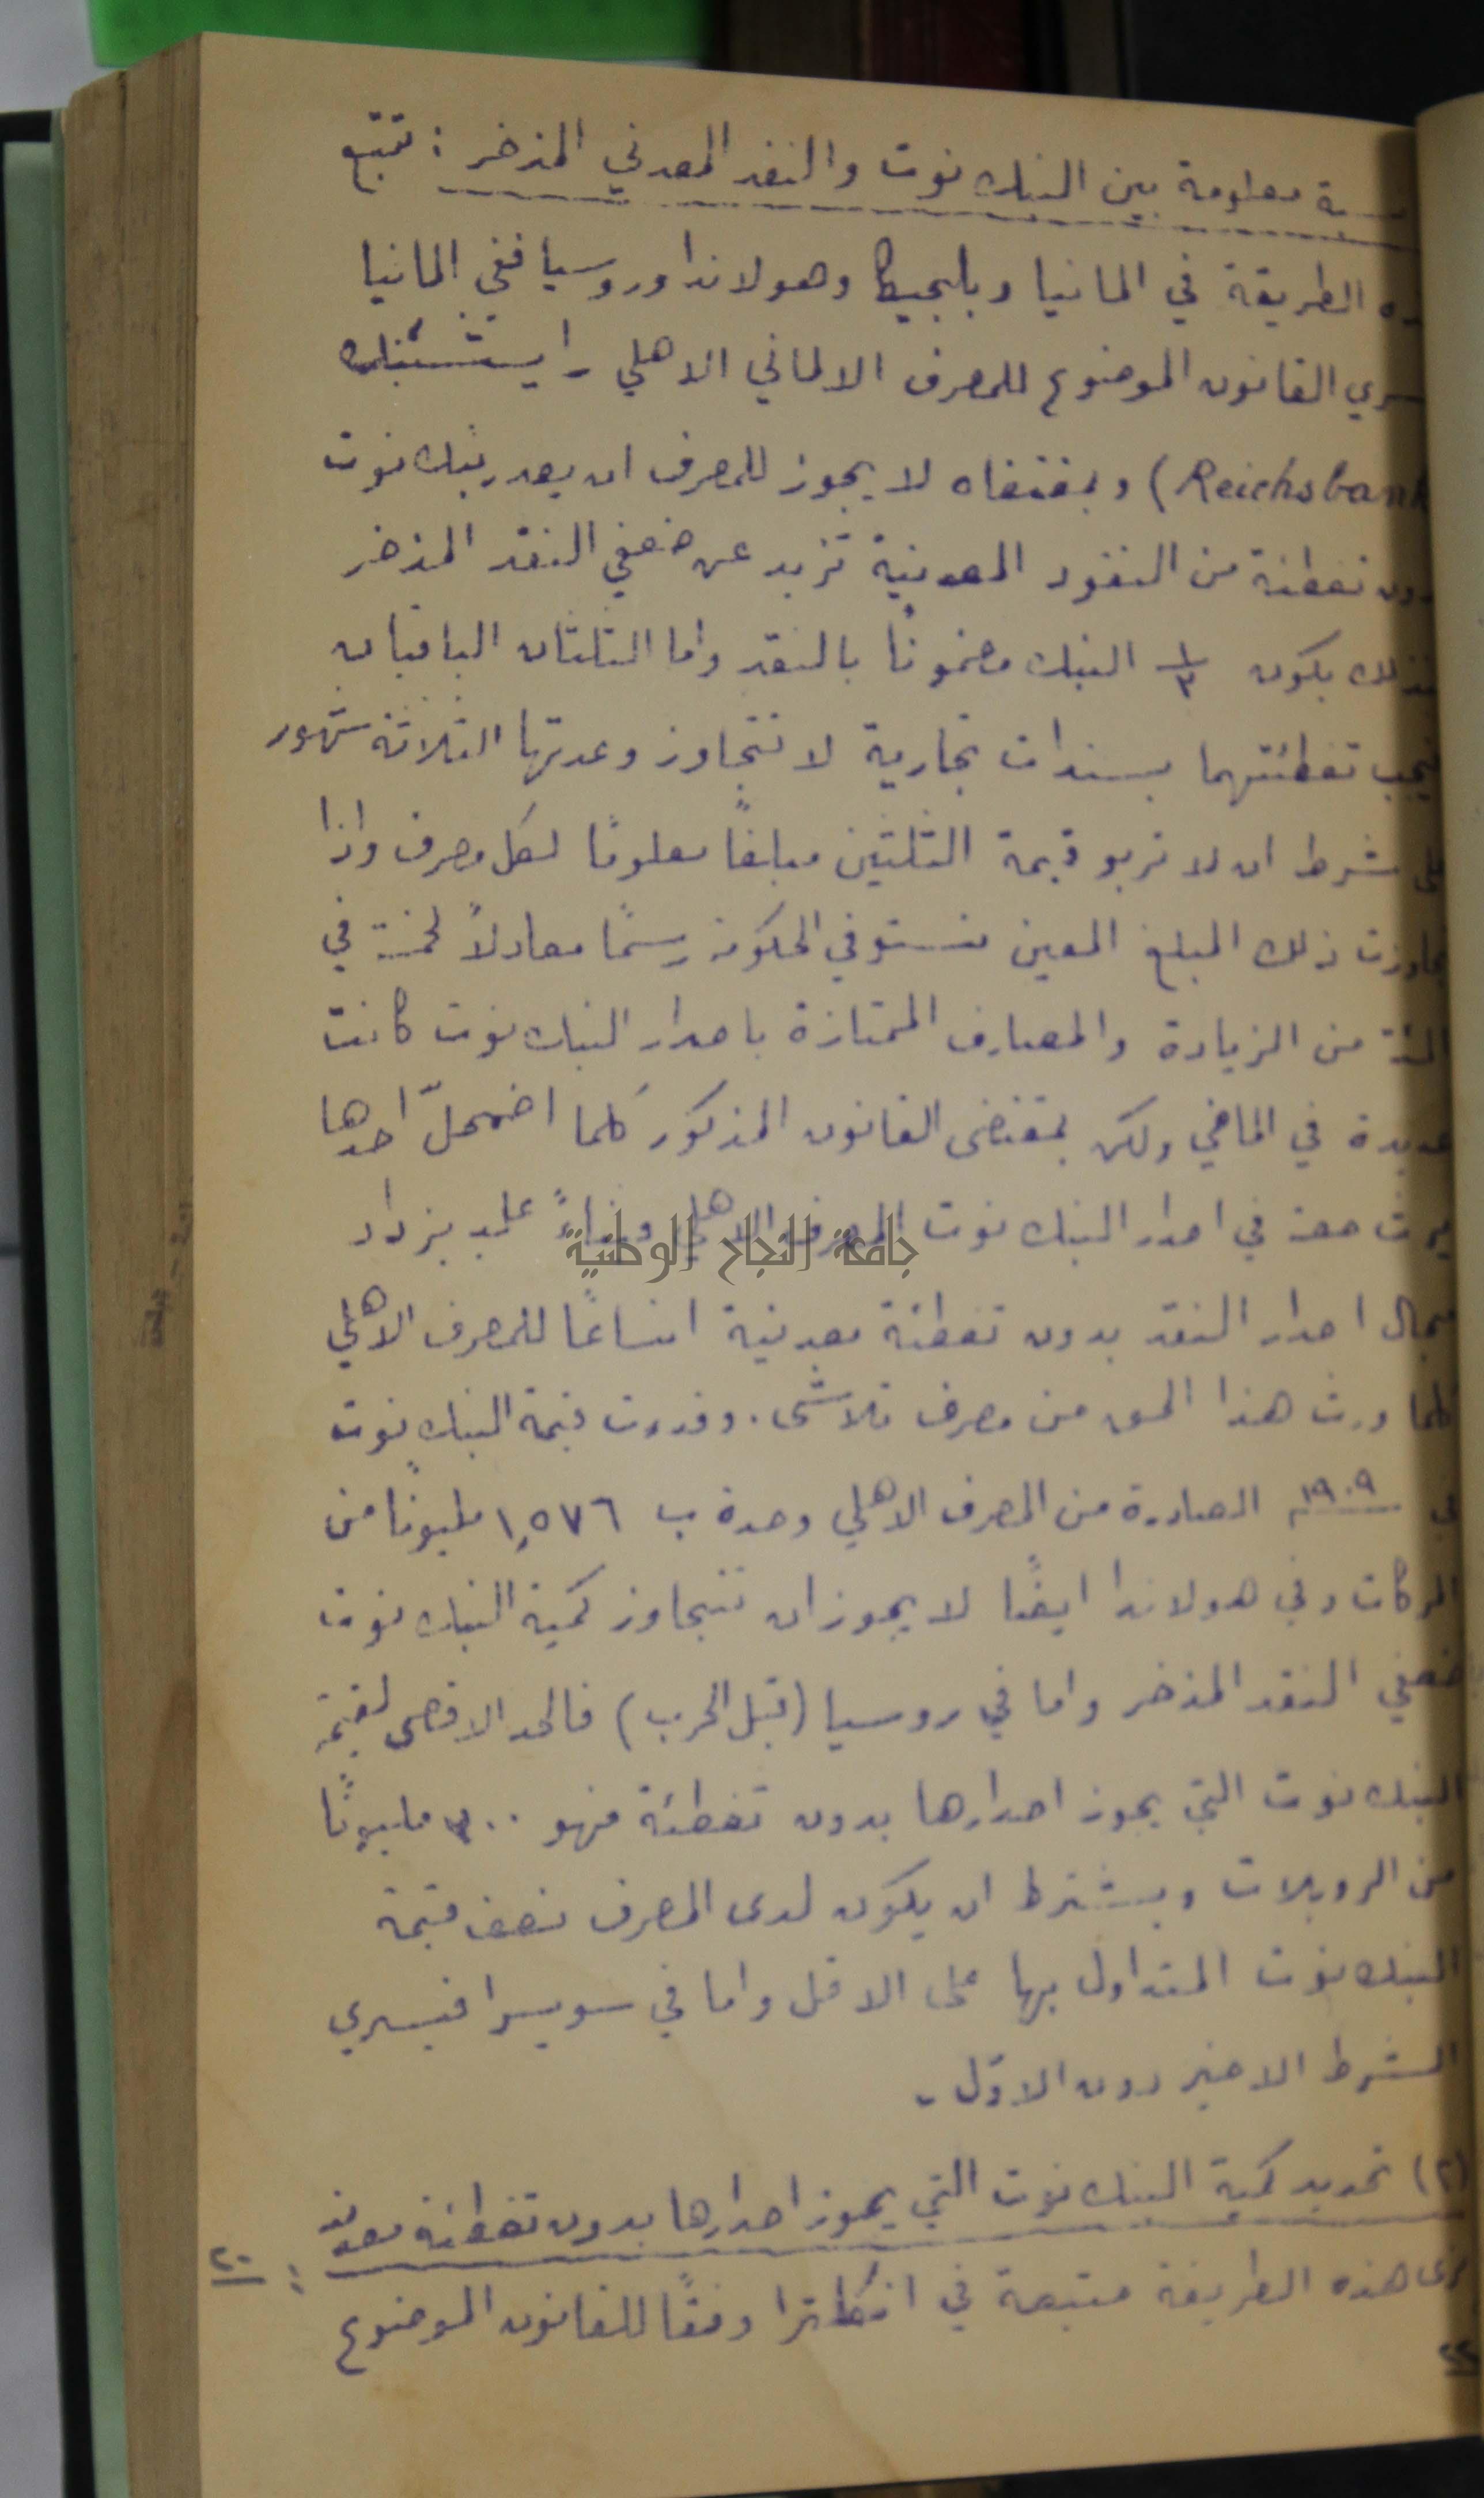 نسبة معلومة بين البنك نوت والنقد المعدني المذخر : تتبع
هذه الطريقة في المانيا وبلجيكا وهولاندا وروسيا ففي المانيا
يسري القانون الموضوع للمصرف الالماني الاهلي رايشسبنك
(Reichsbank) وبمقتضاه لا يجوز للمصرف ان يصدر بنك نوت
بدون تغطئة من النقود المعدنية تزيد عن ضعفي النقد المذخر
فبذلك يكون ١/٣ البنك مضموناً بالنقد واما الثلثان الباقيان
فيجب تغطئتهما بسندات تجارية لا تتجاوز وعدتها الثلاثة شهور
على شرط ان لا تربو قيمة الثلثين مبلغاً معلومًا لكل مصرف واذا
تجاوزت ذلك المبلغ المعين تستوفي الحكومة رسمًا معادلاً لخمسة في
المئة من الزيادة والمصارف الممتازة باصدار البنك نوت كانت
عديدة في الماضي ولكن بمقتضى القانون المذكور كلما اضمحلّ احدها
يرث حقه في اصدار البنك نوت المصرف الاهلي وبناءً عليه يزداد
جامعة النجاح الوطنية
مجال اصدار النقد بدون تغطئة معدنية اتساعًا للمصرف الاهلي
كلما ورث هذا الحق من مصرف تلاشى . وقدرت قيمة البنك نوت
في ١٩٠٩ الصادرة من المصرف الاهلي وحده ب ١,٥٧٦ مليونًا من
المركات وفي هولاندا ايضًا لا يجوز ان تتجاوز كمية البنك نوت
ضعفي النقد المذخر واما في روسيا (قبل الحرب) فالحد الاقصى لقيمة
البنك نوت التي يجوز اصدارها بدون تغطئة فهو ٣٠٠ مليونًا
من الروبلات ويشترط ان يكون لدى المصرف نصف قيمة
البنك نوت المتداول بها على الاقل واما في سويسرا فيسري
الشرط الاخير دون الاوّل .
(٢) تحديد كمية البنك نوت التي يجوز اصدارها بدون تغطائة معدنية :
٢٠
نرى هذه الطريقة متبعة في انكلترا وفقًا للقانون الموضوع